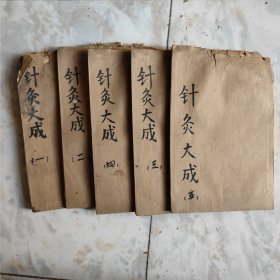 针灸大成
(一)
针灸大成
(二)
针灸大成
(四)
针灸大成
(三)
针灸大成
(五)